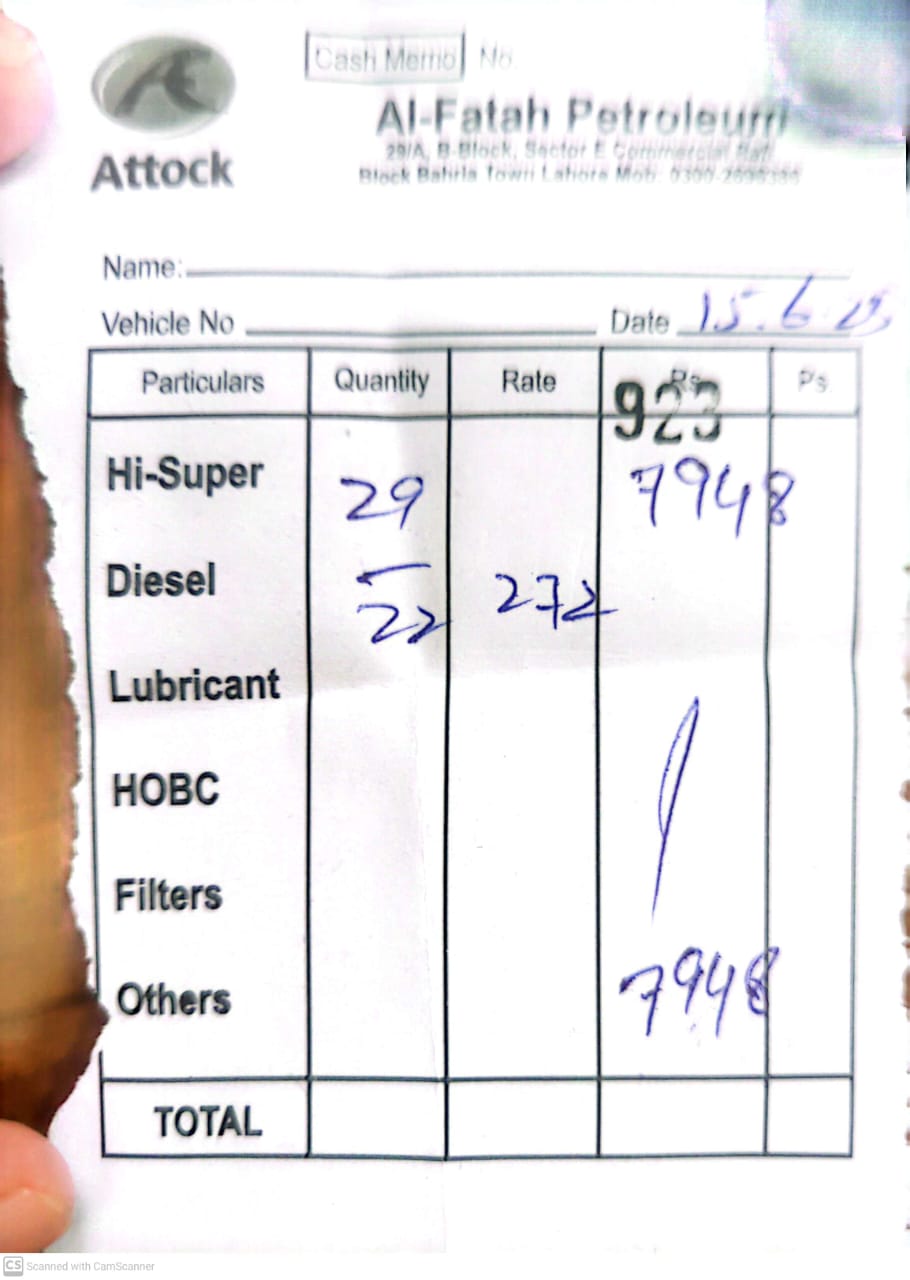 Cash Memo No.
Al-Fatah Petroleum
Attock
29/A, B-Block, Sector E Commercial
Block Bahria Town Lahore Mob:
Name:
Vehicle No Date 15.6.
Particulars Quantity Rate Rs Ps.
923
Hi-Super 29 7948
Diesel 22 272
Lubricant
HOBC
Filters
Others 7948
TOTAL
CS Scanned with CamScanner